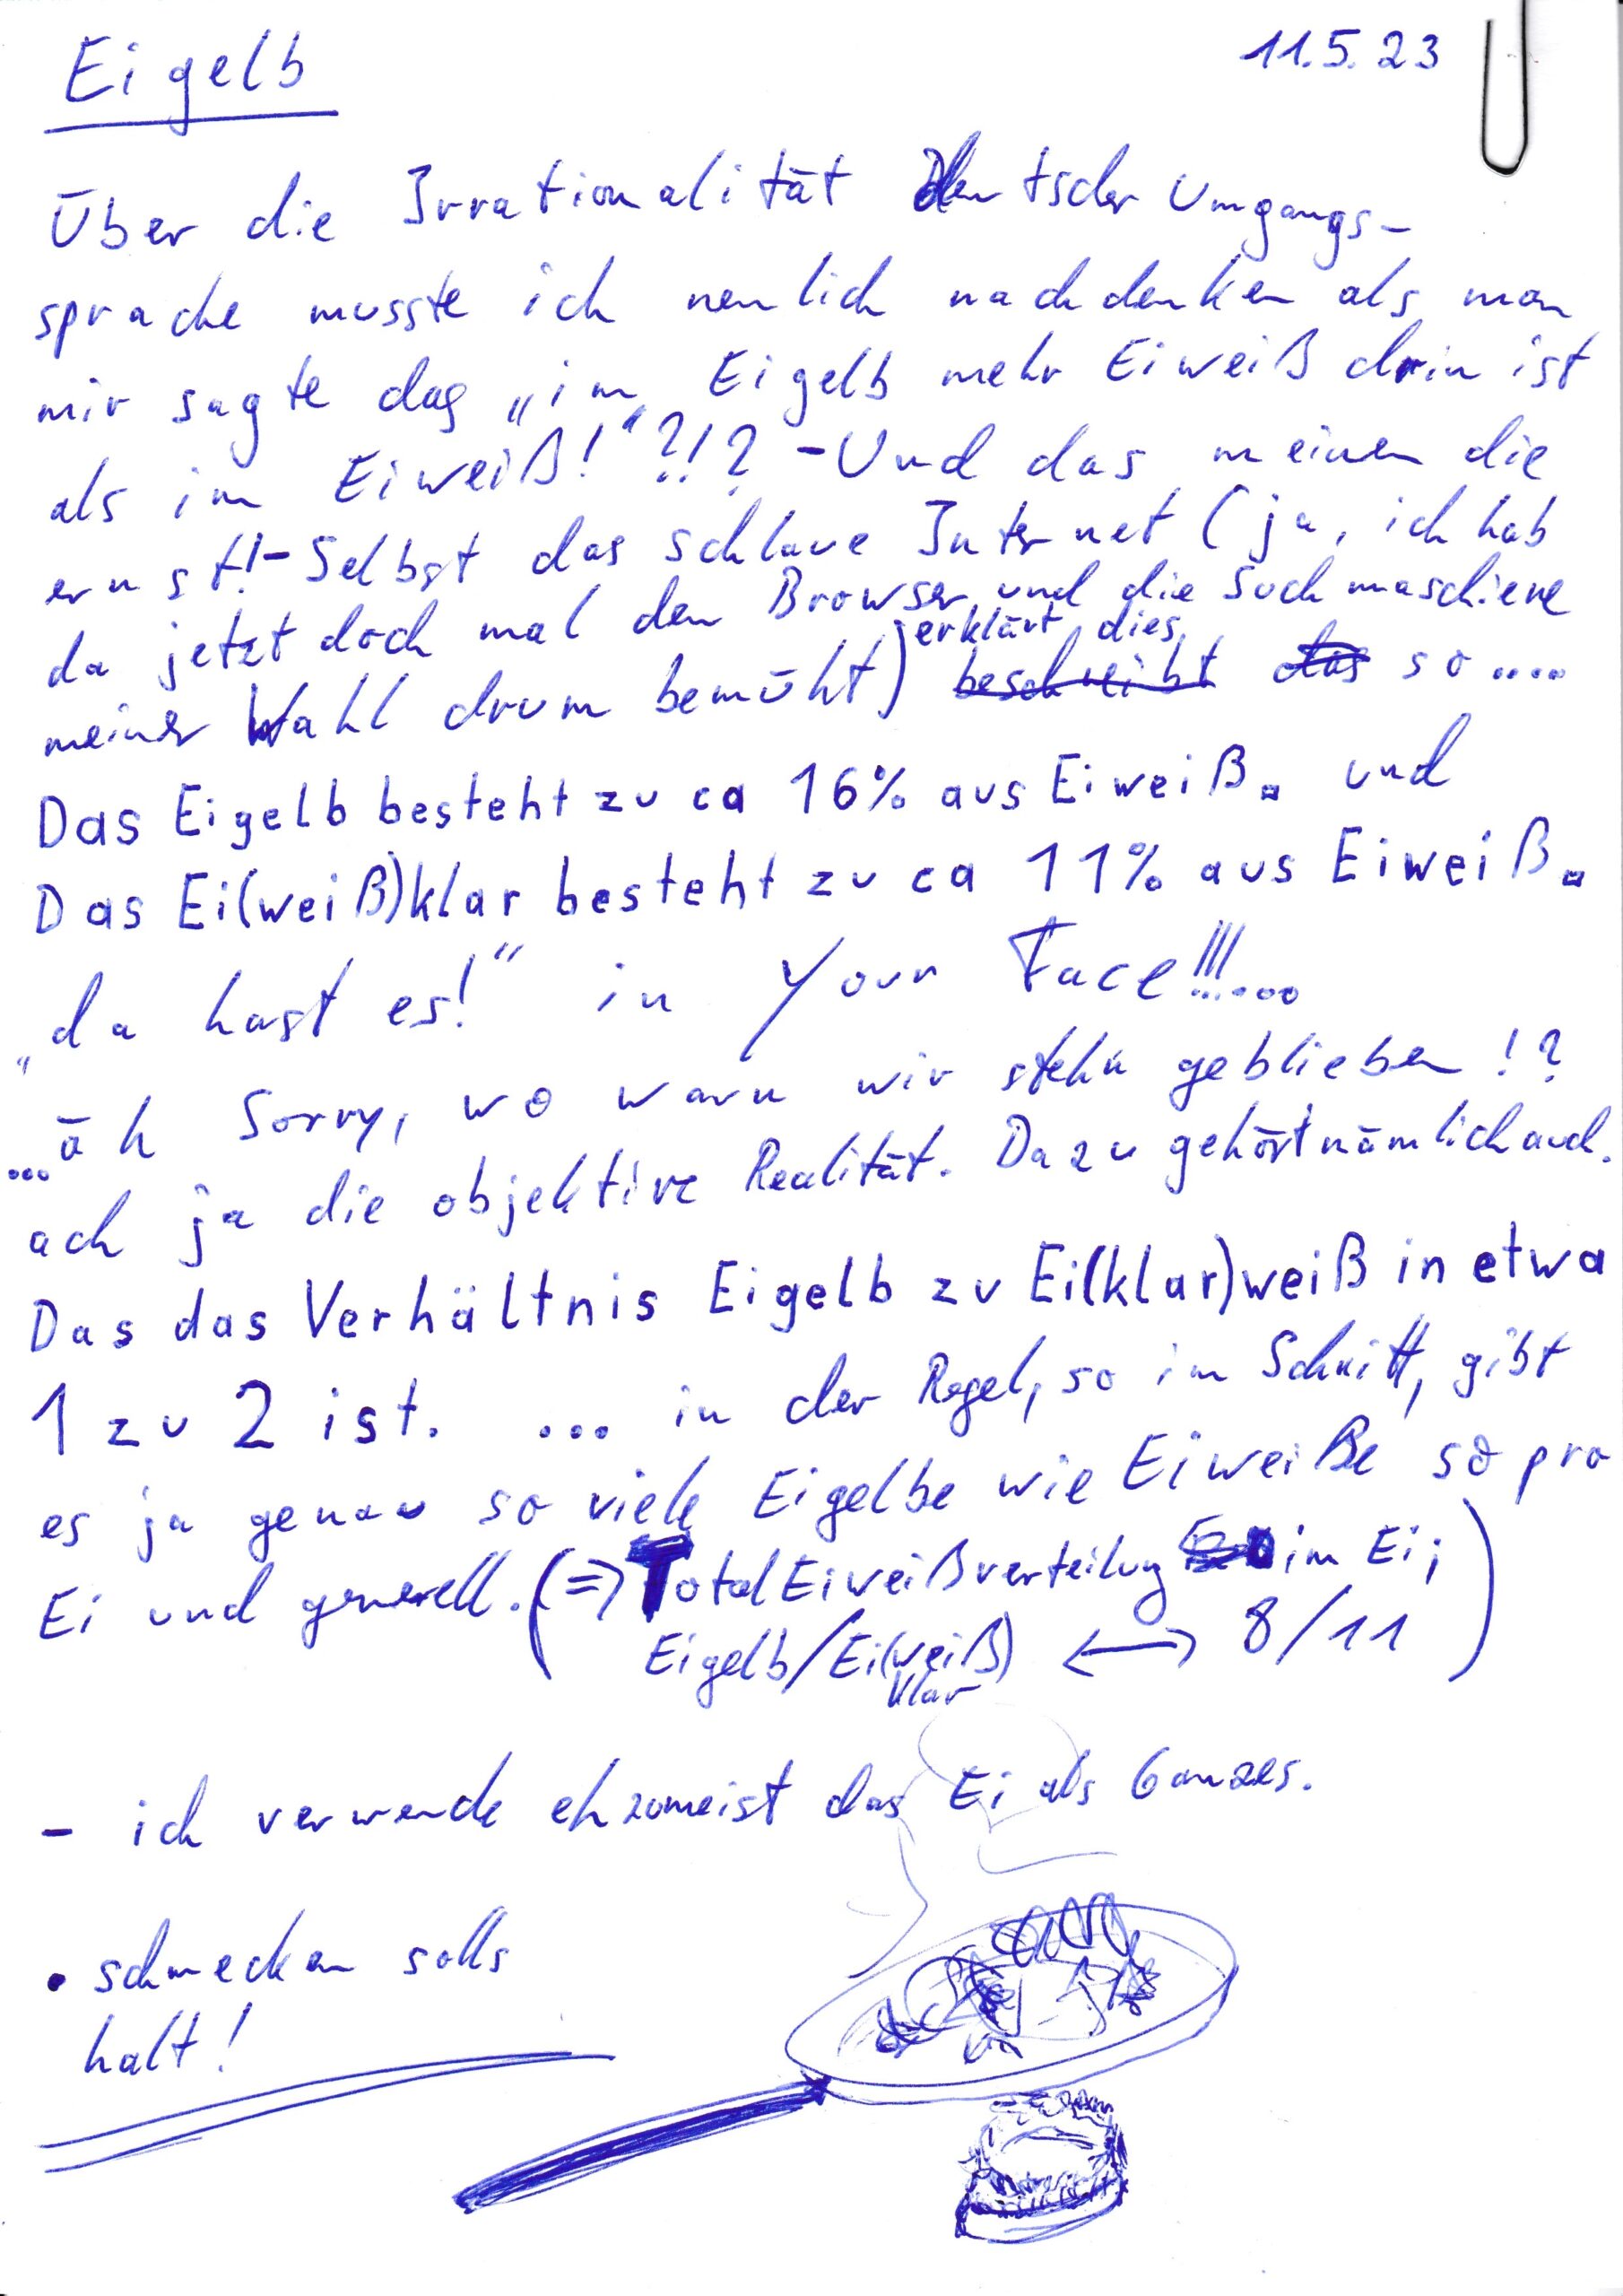 Eigelb
11.5.23
Über die Irrationalität Deutscher Umgangs-
sprache musste ich neulich nachdenken als man
mir sagte das „im Eigelb mehr Eiweiß drin ist
als im Eiweiß!“ ?!? - Und das meinen die
ernst!- Selbst das schlaue Internet (ja, ich hab
da jetzt doch mal den Browser und die Suchmaschiene
meiner Wahl drum bemüht) erklärt dies beschreibt das so....
Das Eigelb besteht zu ca 16% aus Eiweiß. und
Das Ei(weiß)klar besteht zu ca 11% aus Eiweiß.
„da hast es!“ in Your Face!!!....
...äh Sorry, wo warn wir stehn geblieben!?
ach ja die objektive Realität. Dazu gehört nämlich auch.
Das das Verhältnis Eigelb zu Ei(klar)weiß in etwa
1 zu 2 ist. ... in der Regel, so im Schnitt, gibt
es ja genau so viele Eigelbe wie Eiweiße so pro
Ei und generell. (=> Total Eiweißverteilug im Ei;
Eigelb/Ei(weiß) klar <-> 8/11)
- ich verwende ehzumeist das Ei als Ganzes.
• schmecken solls
halt!